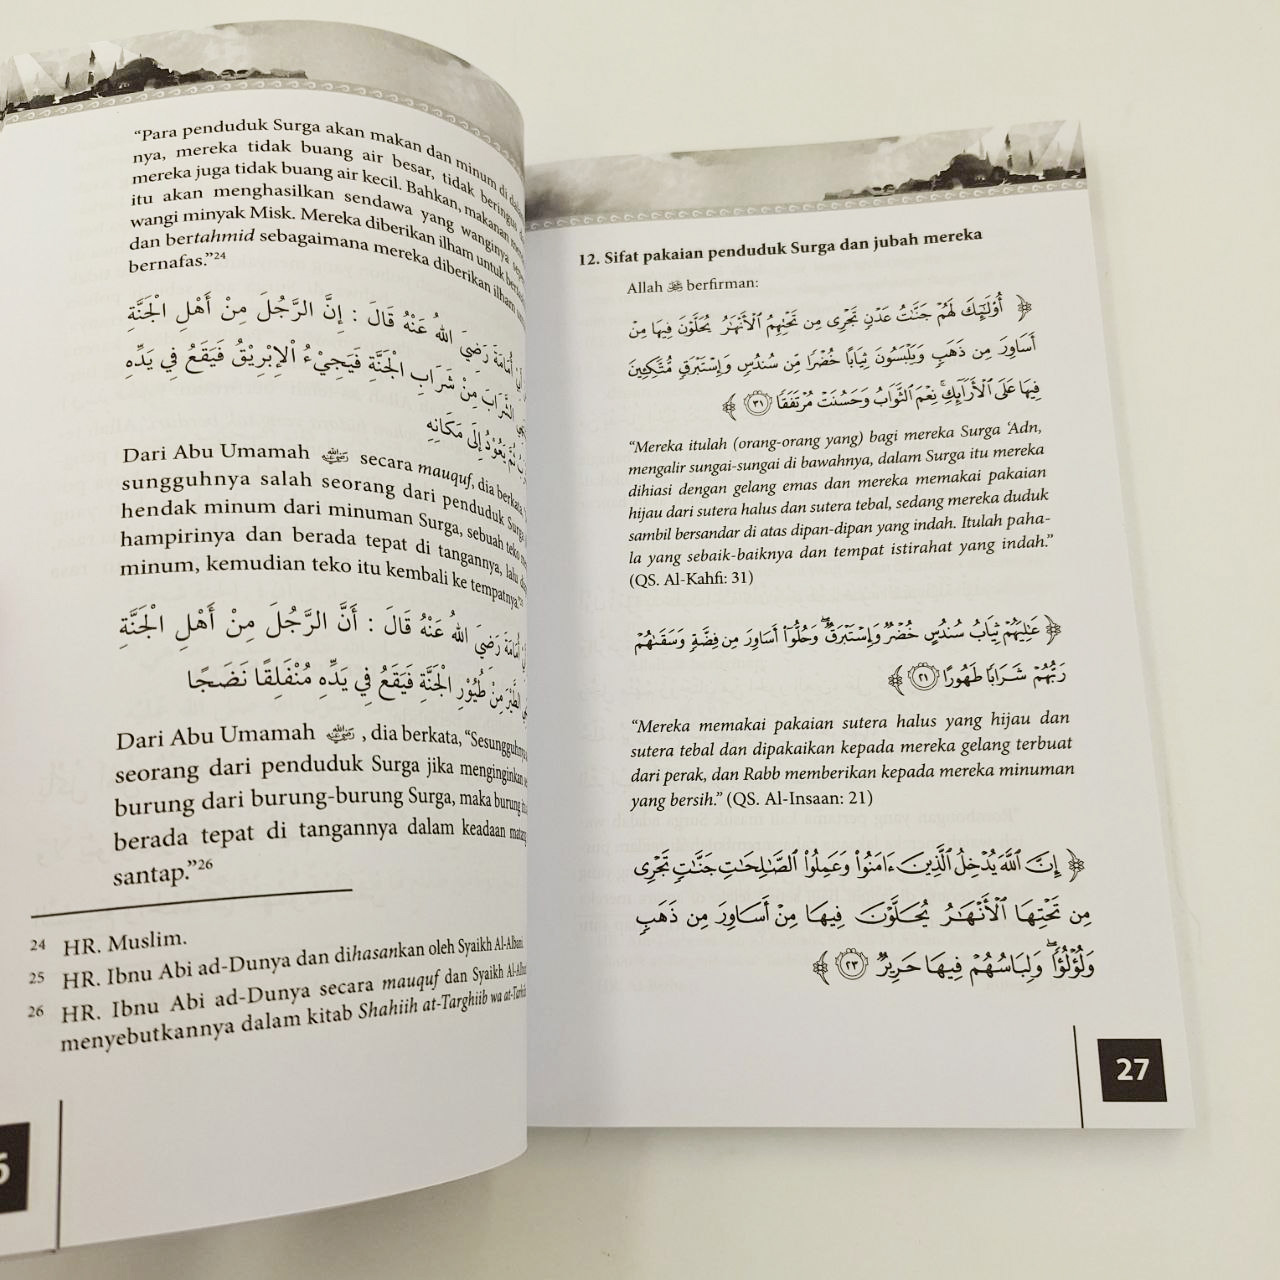 "Para penduduk Surga akan makan dan minum di
nya, mereka tidak buang air besar, tidak beringus
mereka juga tidak buang air kecil. Bahkan, makanan
itu akan menghasilkan sendawa yang wanginya
wangi minyak Misk. Mereka diberikan ilham untuk
dan bertahmid sebagaimana mereka diberikan ilham
bernafas."24
أُمَامَةَ رَضِيَ اللهُ عَنْهُ قَالَ : إِنَّ الرَّجُلَ مِنْ أَهْلِ الْجَنَّةِ
الشَّرَابَ مِنْ شَرَابِ الْجَنَّةِ فَيَجِيْءُ الْإِبْرِيْقُ فَيَقَعُ فِي يَدِّهِ
ثُمَّ يَعُوْدُ إِلَى مَكَانِهِ
Dari Abu Umamah ﵁ secara mauquf, dia berkata
sungguhnya salah seorang dari penduduk Surga
hendak minum dari minuman Surga, sebuah teko
hampirinya dan berada tepat di tangannya, lalu
minum, kemudian teko itu kembali ke tempatnya."25
أُمَامَةَ رَضِيَ اللهُ عَنْهُ قَالَ : أَنَّ الرَّجُلَ مِنْ أَهْلِ الْجَنَّةِ
الطَّيْرَ مِنْ طُيُوْرِ الْجَنَّةِ فَيَقَعُ فِي يَدِّهِ مُنْفَلِقًا نَضَجًا
Dari Abu Umamah ﵁, dia berkata, "Sesungguhnya
seorang dari penduduk Surga jika menginginkan
burung dari burung-burung Surga, maka burung
berada tepat di tangannya dalam keadaan
santap."26
24 HR. Muslim.
25 HR. Ibnu Abi ad-Dunya dan dihasankan oleh Syaikh Al-Albani.
26 HR. Ibnu Abi ad-Dunya secara mauquf dan Syaikh
menyebutkannya dalam kitab Shahiih at-Targhiib wa at-Tarhiib
12. Sifat pakaian penduduk Surga dan jubah mereka
Allah ﷻ berfirman:
﴿ أُوْلَٰٓئِكَ لَهُمْ جَنَّٰتُ عَدْنٍ تَجْرِى مِن تَحْتِهِمُ ٱلْأَنْهَٰرُ يُحَلَّوْنَ فِيهَا مِنْ
أَسَاوِرَ مِن ذَهَبٍ وَيَلْبَسُونَ ثِيَابًا خُضْرًا مِّن سُندُسٍ وَإِسْتَبْرَقٍ مُّتَّكِـِٔينَ
فِيهَا عَلَى ٱلْأَرَآئِكِ ۚ نِعْمَ ٱلثَّوَابُ وَحَسُنَتْ مُرْتَفَقًا ٣١ ﴾
"Mereka itulah (orang-orang yang) bagi mereka Surga 'Adn,
mengalir sungai-sungai di bawahnya, dalam Surga itu mereka
dihiasi dengan gelang emas dan mereka memakai pakaian
hijau dari sutera halus dan sutera tebal, sedang mereka duduk
sambil bersandar di atas dipan-dipan yang indah. Itulah paha-
la yang sebaik-baiknya dan tempat istirahat yang indah."
(QS. Al-Kahfi: 31)
﴿ عَٰلِيَهُمْ ثِيَابُ سُندُسٍ خُضْرٌ وَإِسْتَبْرَقٌ ۖ وَحُلُّوٓا۟ أَسَاوِرَ مِن فِضَّةٍ وَسَقَىٰهُمْ
رَبُّهُمْ شَرَابًا طَهُورًا ٢١ ﴾
"Mereka memakai pakaian sutera halus yang hijau dan
sutera tebal dan dipakaikan kepada mereka gelang terbuat
dari perak, dan Rabb memberikan kepada mereka minuman
yang bersih." (QS. Al-Insaan: 21)
﴿ إِنَّ ٱللَّهَ يُدْخِلُ ٱلَّذِينَ ءَامَنُوا۟ وَعَمِلُوا۟ ٱلصَّٰلِحَٰتِ جَنَّٰتٍ تَجْرِى
مِن تَحْتِهَا ٱلْأَنْهَٰرُ يُحَلَّوْنَ فِيهَا مِنْ أَسَاوِرَ مِن ذَهَبٍ
وَلُؤْلُؤًا ۖ وَلِبَاسُهُمْ فِيهَا حَرِيرٌ ٢٣ ﴾
27